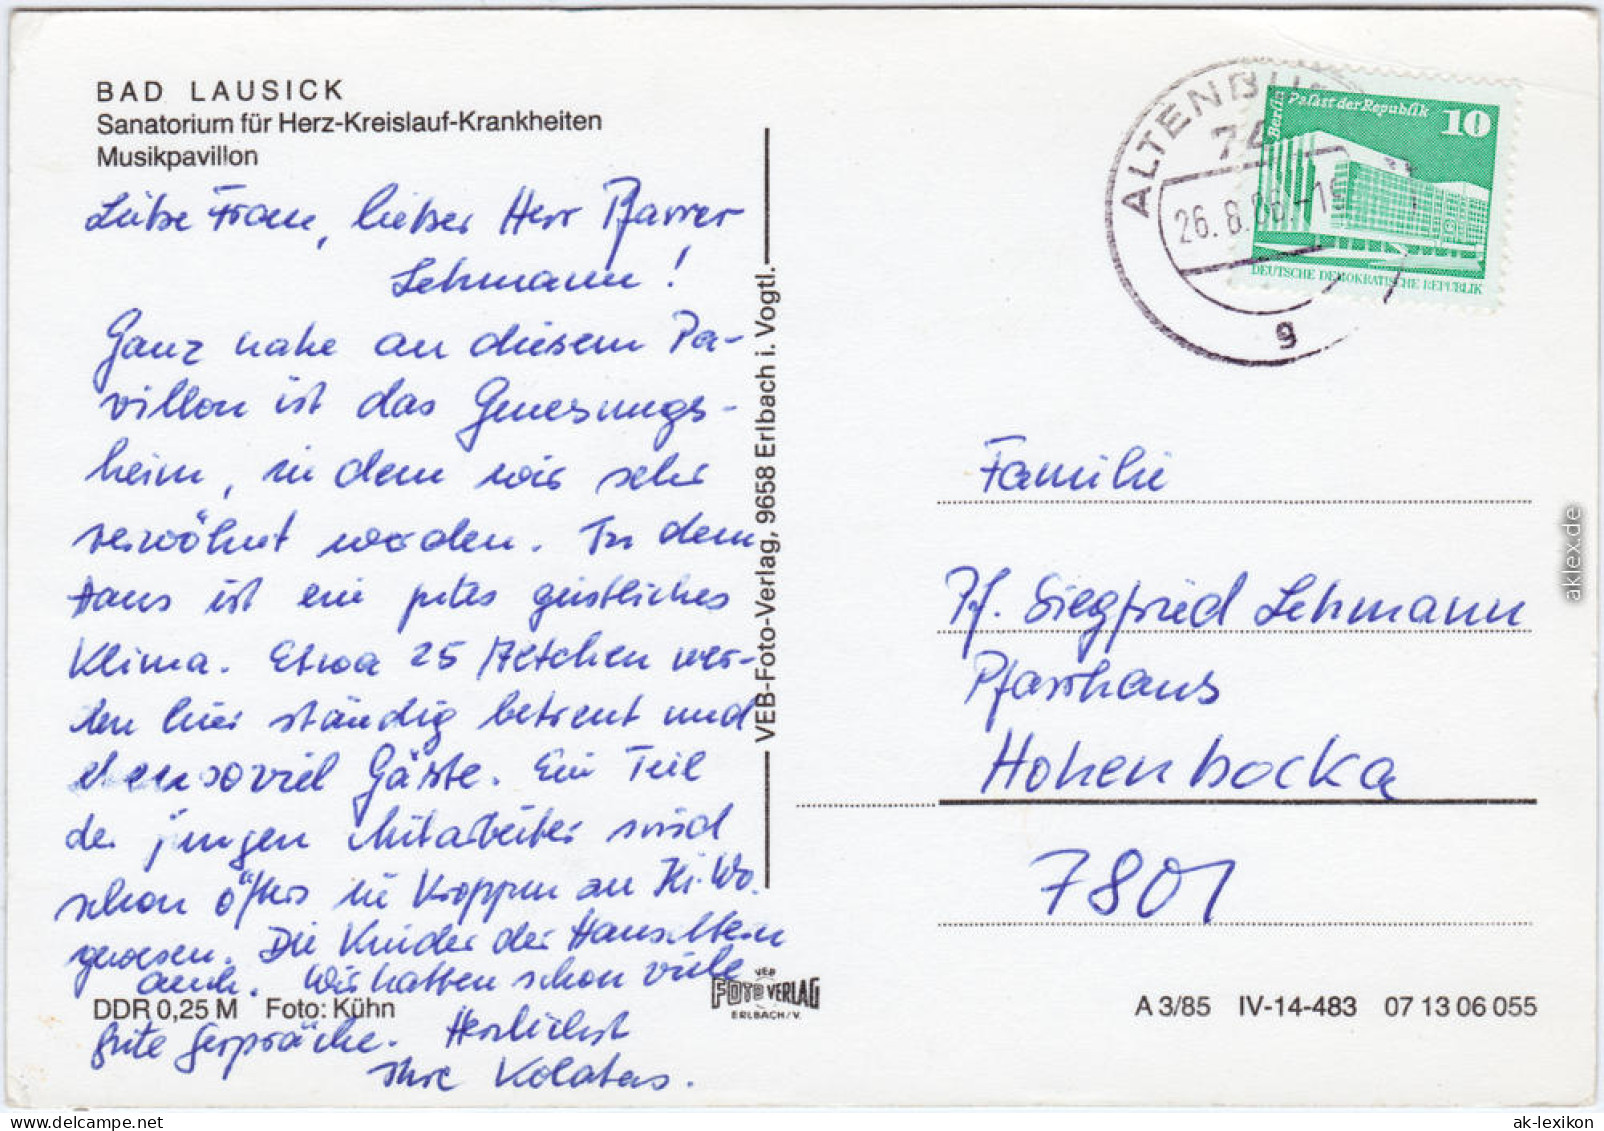 BAD LAUSICK
Sanatorium für Herz-Kreislauf-Krankheiten
Musikpavillon
Liebe Frau, lieber Herr Pfarrer
Lehmann!
Ganz nahe an diesem Pa-
villon ist das Genesungs-
heim, in dem wir sehr
verwöhnt werden. In dem
Haus ist ein gutes geistliches
Klima. Etwa 25 Mädchen wer-
den hier ständig betreut und
ebensoviel Gäste. Ein Teil
der jungen Mitarbeiter sind
schon öfters in Kroppen zu Ki. Wo.
gewesen. Die Kinder der Hauseltern
auch. Wir hatten schon viele
gute Gespräche. Herzlichst
Ihre Kolatas.
DDR 0,25 M Foto: Kühn
VEB-Foto-Verlag, 9658 Erlbach i. Vogtl.
VEB
FOTO VERLAG
ERLBACH/V.
ALTENBUR
74
26. 8. 86.-1
g
Berlin Palast der Republik 10
DEUTSCHE DEMOKRATISCHE REPUBLIK
Familie
Pf. Siegfried Lehmann
Pfarrhaus
Hohenbocka
7801
A 3/85 IV-14-483 07 13 06 055
aklex.de
www.delcampe.net
ak-lexikon